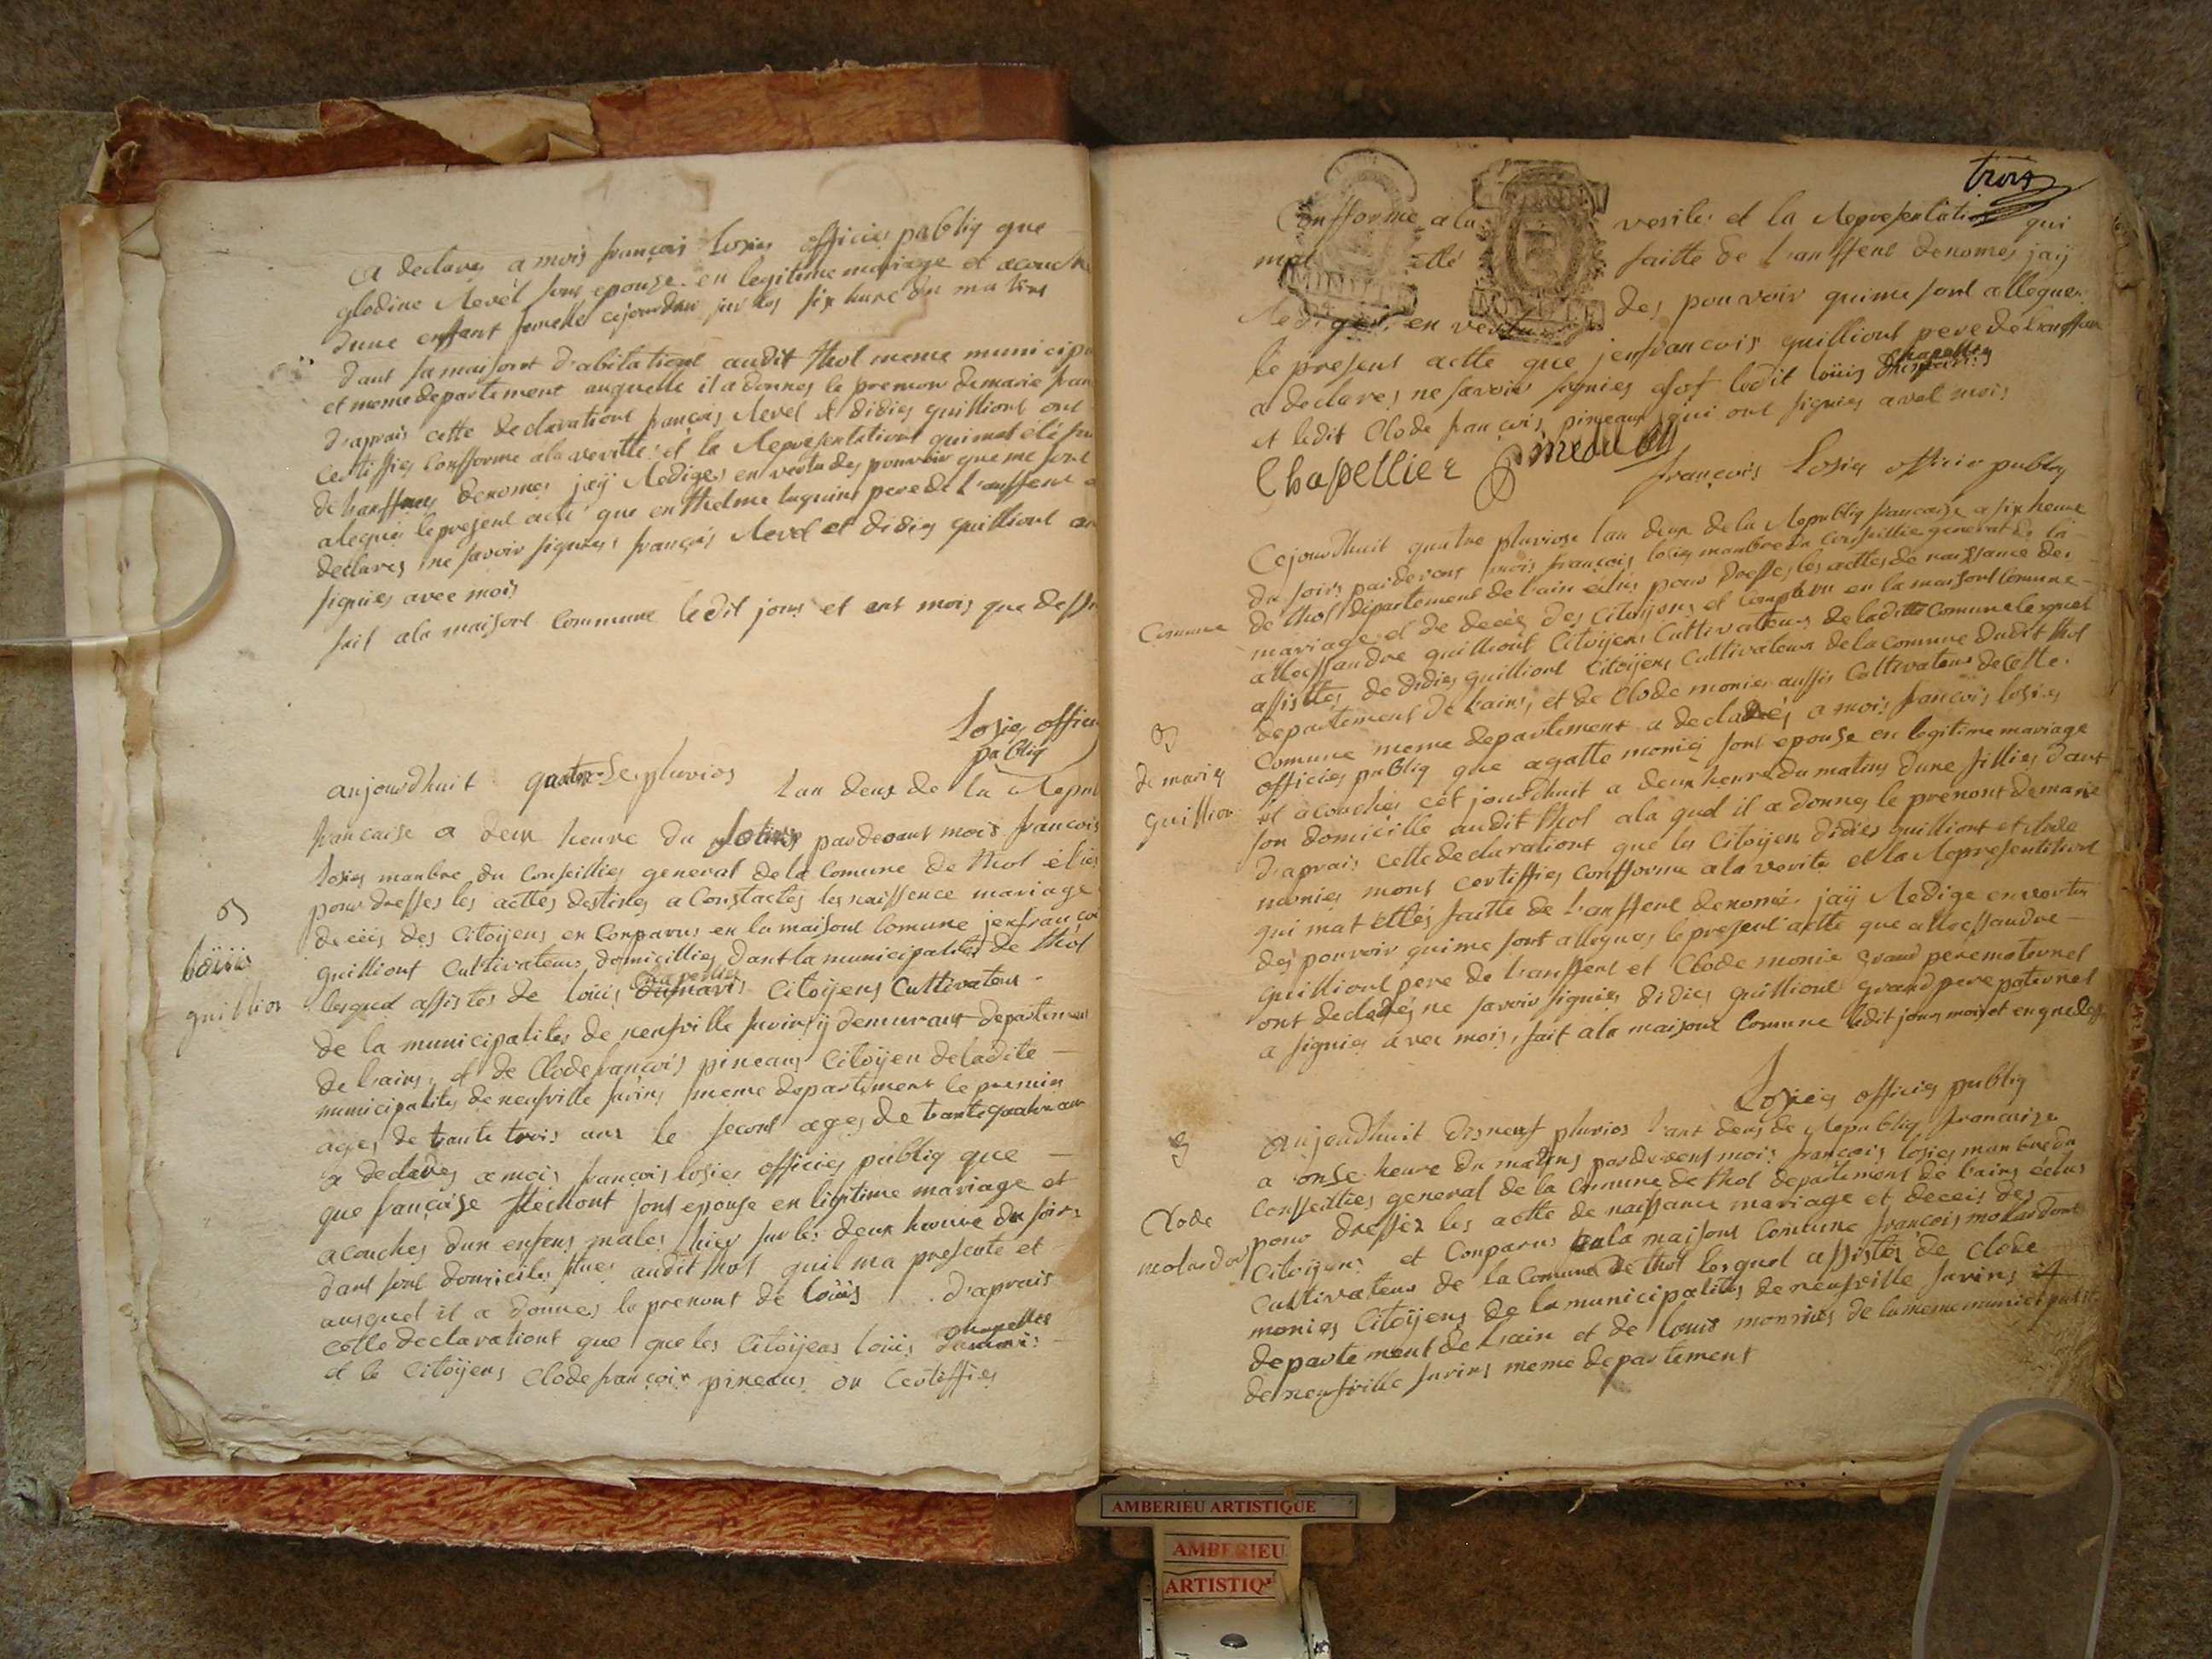 a declares a mois françois losies officies publiq que
glodine Revel sont epouse en legitime mariage et acouche
dune enffant femelle cejourdui sur les six hure du matins
dant sa maisont d'abitationt audit thol meme municip
et meme departement auquelle il a donnes le prenom de marie fran
d'aprais cette declarationt françois Revel et didies guilliont ont
certiffies confforme ala veritté et la Representationt qui mat été fai
de l'anffens denomes jaÿ Rediges en vertu des pouvoir que me sont
alegues le present acte que enthelme luguins pere de l'anffent a
declares ne savoir signies françois Revel et didies guilliont on
signies avec mois
fait ala maisont Commune ledit jours et ant mois que dessu
losies offici
publiq
aujourdhuit quatorse pluvios lan deux de la Repub
francaise a deux heure du soirs pardevant mois francois
losies manbre du Conseillies general de la Comune de thol élus
pour dresses les acttes destines a Constactes les naissence mariage
deceis des Citoijens en Conparus en la maisont Comune jenfrançoi
löüis
guillion
guilliont Cultivateurs domicillies dant la municipalites de thol
lesquel assistes de loüis Chapellies Citoijens Cultivateur
de la municipalites de neufville surins ÿ demurant departement
de lains, et de Clodefrancois pineaus Citoijen deladite
municipalites de neufville surins meme departement le premier
ages de trante trois ans le second ages de trante quatre an
a declares a mois françois losies officies publiq que
que françoise flechont sont epouse en ligitime mariage et
acouches dun enfens males hier sur les deux heure du soirs
dant sont domiciles situes audit thol quil ma presente et
auquel il a donnes le prenont de loüis d'aprais
cette declarationt que que les Citoijens loüis Chapellies
et le Citoijens Clodefrançois pineaus on Certiffies
trois
Confforme a la verité et la Representation qui
mat etté faitte de l'anffent denomes jaÿ
Rediges en vertu des pouvoir quime sont allegues
le present actte que jenfrancois guilliont pere de l'anffan
a declares ne savoir signies et ledit loüis Chapellies
et ledit Clode françois pineaus qui ont signies avec mois
Chapellier pineau
françois losies officie publiq
Cejourdhuit quatre pluviose lan deux de la Republiq francaise a six heure
du soirs pardevent mois françois losies manbre du Conseillie general de la
Comune
de thol departement de lain élus pour dresses les acttes de naissance de
mariage et de deceis des Citoijens et Comparu en la maisont Comune
allecssandre guilliont Citoijens Cultivateurs de laditte Comune lesquel
assisttes de didies guilliont Citoijens Cultivateur de la comune dudit thol
departement de l'ains, et de Clode monies aussis Coltivateur decette
Comune meme departement a declarés a mois françois losies
de marie
guillion
officies publiq que agatte monies sont épouse en legitime mariage
est acouches cet jourdhuit a deux heure du matins dune fillies dant
son domicille audit thol ala quel il a donnes le prenont de marie
d'aprais cette declarationt que les Citoijens didies guilliont et clode
monies mont certiffies confforme ala verite et la Representationt
qui mat ettés faitte de l'anffent denomé jaÿ Redige en vertu
des pouvoir quime sont allegues le present actte que allecssandre
guilliont pere de l'anffent et Clode monie grand pere maternel
ont declarés ne savoir signies didies guilliont grand pere paternel
a signies avec mois, fait ala maisont Comune ledit jours mois et en que dess
losies officies publiq
Clode
molardon
aujourdhuit disneuf pluvios l'ant deux de Republiq francaise
a onse heure du matins pardevent mois francois losies manbre du
Conseillies general de la Comune de thol departement de lains élus
pour dresser les actte de naissance mariage et deceis des
Citoijens et Conparus en la maisont Comune françois molardont
Cultivateur de la Comune de thol lesquel assistés de Clode
monies Citoijens de la municipalites de neufville surins
departement de l'ain et de louis monnies de lamememunicipalit
de neufville surins meme departement
AMBERIEU ARTISTIQUE
AMBERIEU
ARTISTIQ